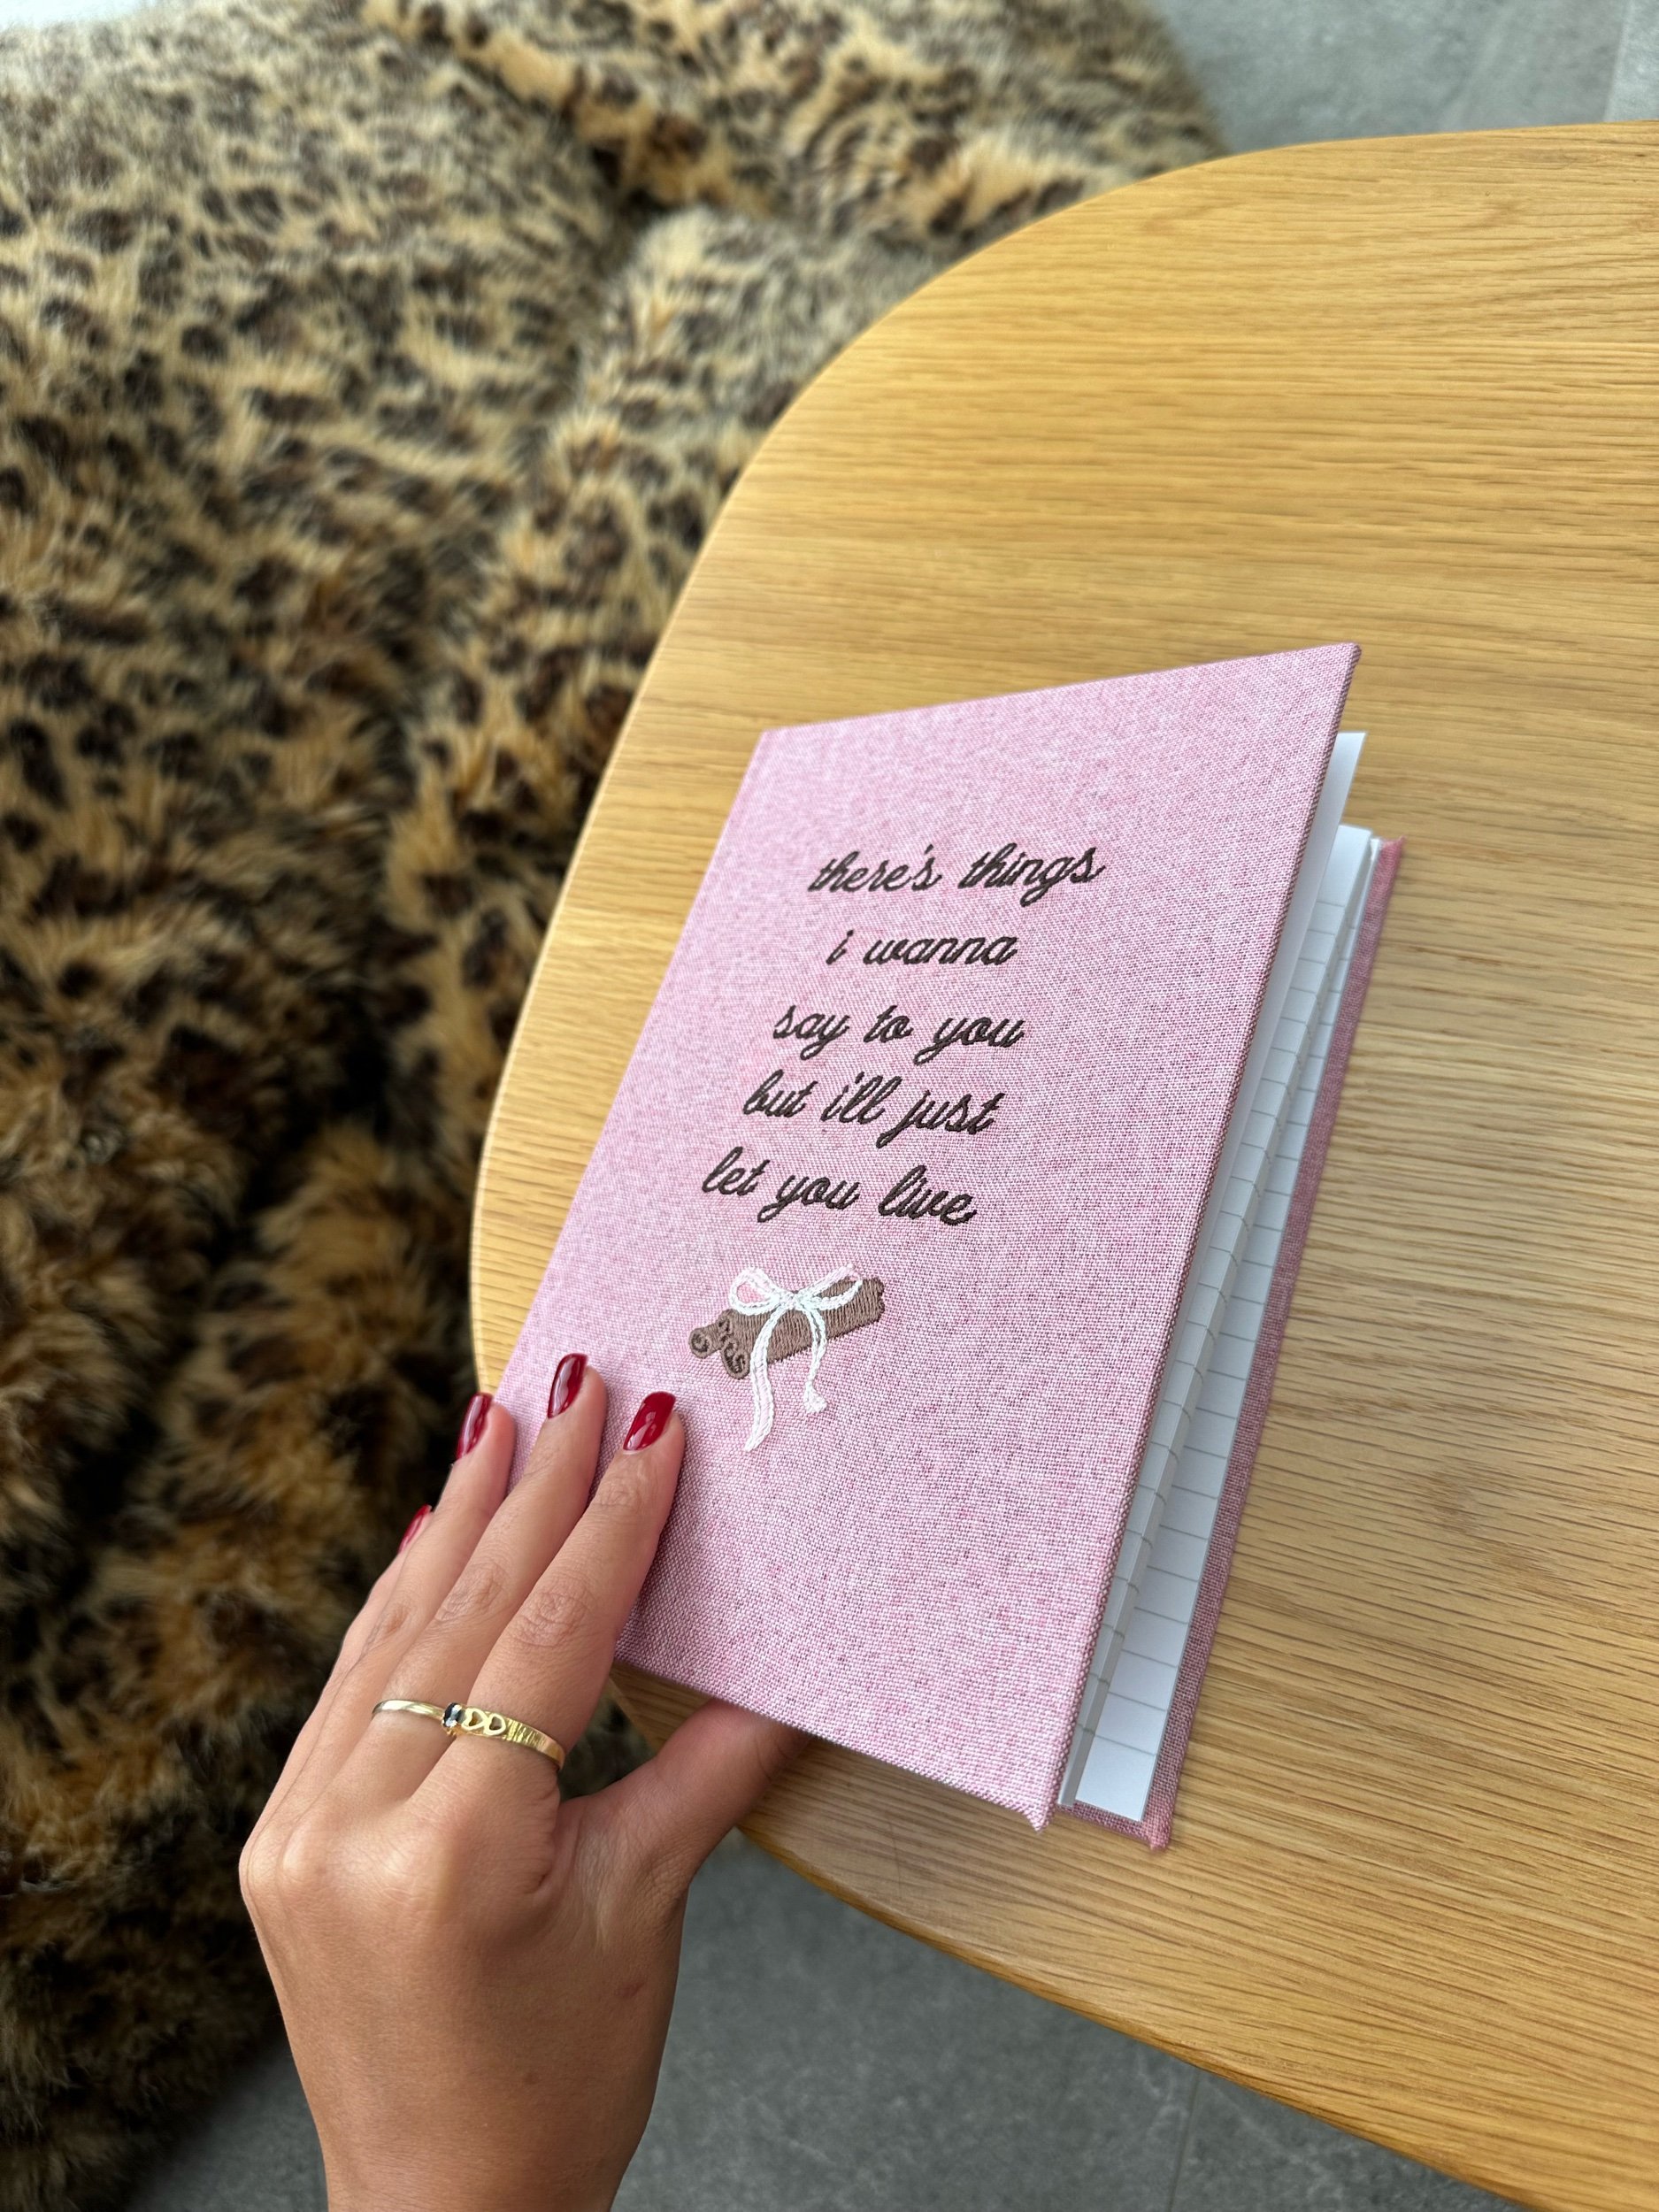 there's things
i wanna
say to you
but i'll just
let you live